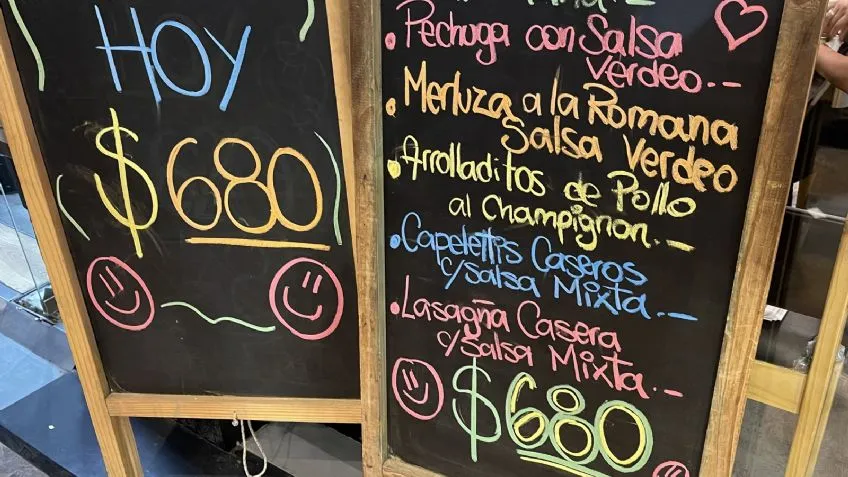 HOY
$680
• Pechuga con Salsa
Verdeo.--
• Merluza a la Romana
Salsa Verdeo
• Arrolladitos de Pollo
al Champignon.--
• Capelettis Caseros
c/salsa Mixta.--
• Lasagña Casera
c/salsa Mixta.--
$680